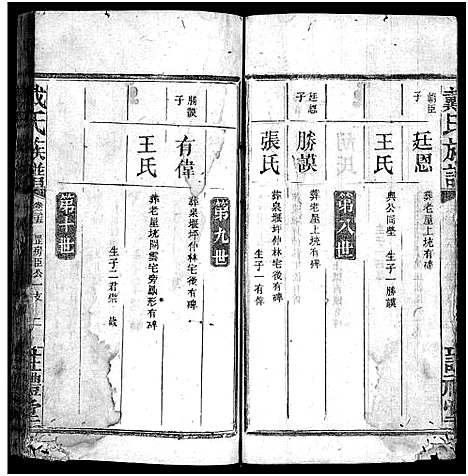 戴氏族譜
朝臣
子
廷恩
葬老屋上垅有碑
王氏
與公同塋
生子一 勝謨
第八世
廷恩
子
勝謨
葬老屋上垅有碑
張氏
葬泉堰坪仲林宅後有碑
生子一有偉
第九世
勝謨
子
有偉
葬泉堰坪仲林宅後有碑
王氏
葬老屋垅陽雲宅旁鳳形有碑
生子二 君崇
第十世
戴氏族譜